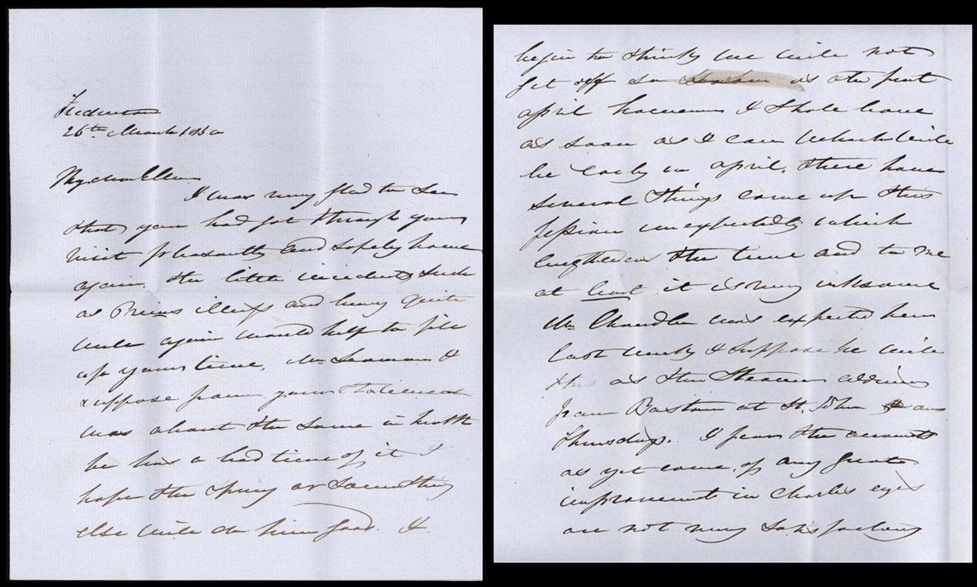 Fredericton
26th March 18
My dear Ellen
I was very glad to see
that you had got through your
visit pleasantly and safely home
again. the little incidents such
as illness and being quite
well again would help to fill
up your time. Mr. Seaman I
suppose from your statement
was about the same in health
he has a bad time of it I
hope the spring or something
else will do him good. I
begin to think we will not
get off so as the first
april however I shall leave
as soon as I can which will
be early in april, there have
several things come up this
session unexpectedly which
lengthens the time and to me
at least it is very irksome
Mr Chandler was expected here
last week I suppose he will
this as the Steamer
from Boston at St. John on
Thursdays. I fear the accounts
as yet come of any great
improvement in Charles eyes
are not very satisfactory